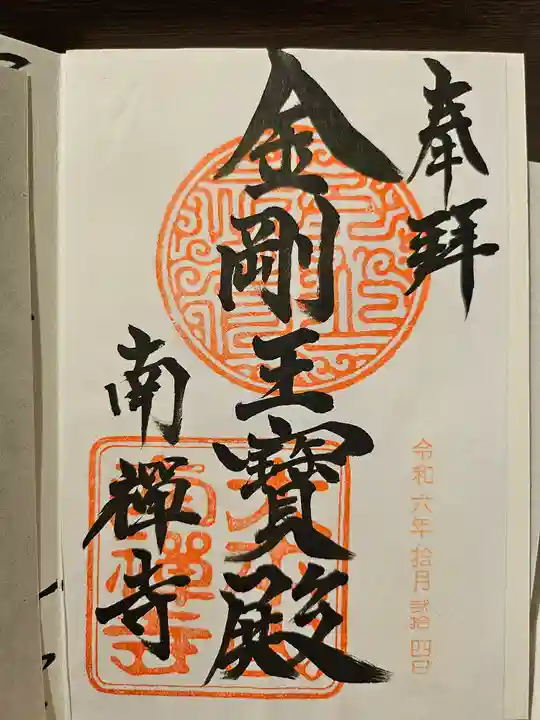 奉拜
金剛王寶殿
南禪寺
令和六年拾月貳拾四日